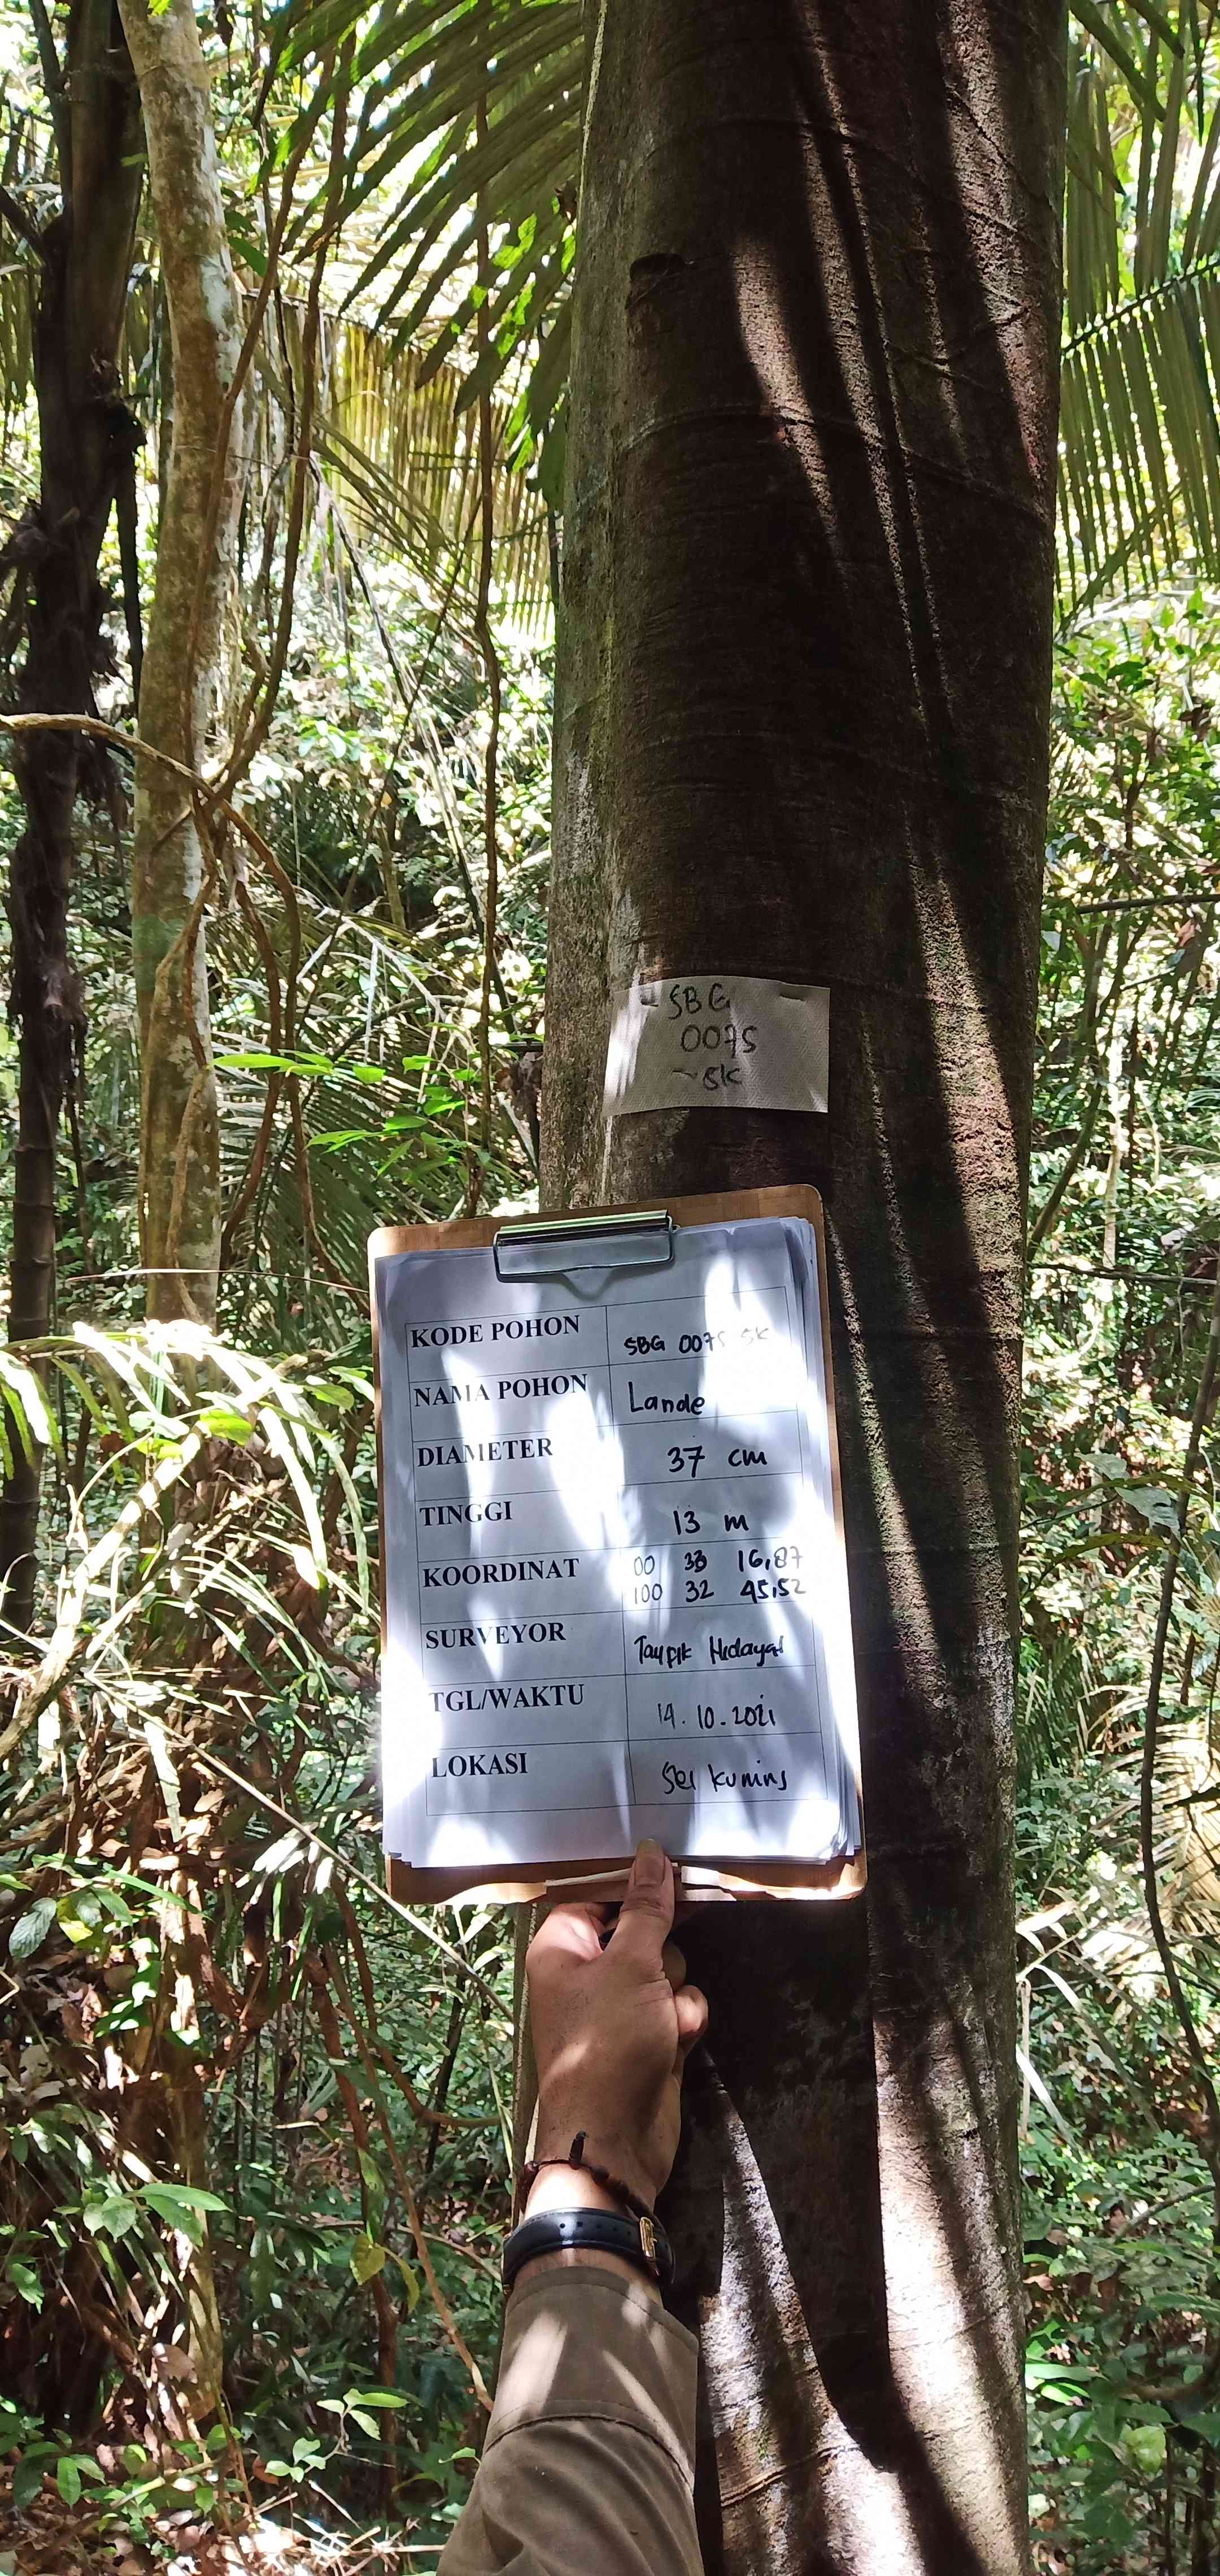 SBG
0075
SK
KODE POHON SBG 0075 SK
NAMA POHON Lande
DIAMETER 37 cm
TINGGI 13 m
KOORDINAT 00 33 16,87
100 32 45,52
SURVEYOR Taufik Hidayat
TGL/WAKTU 14.10.2021
LOKASI Sei kuning